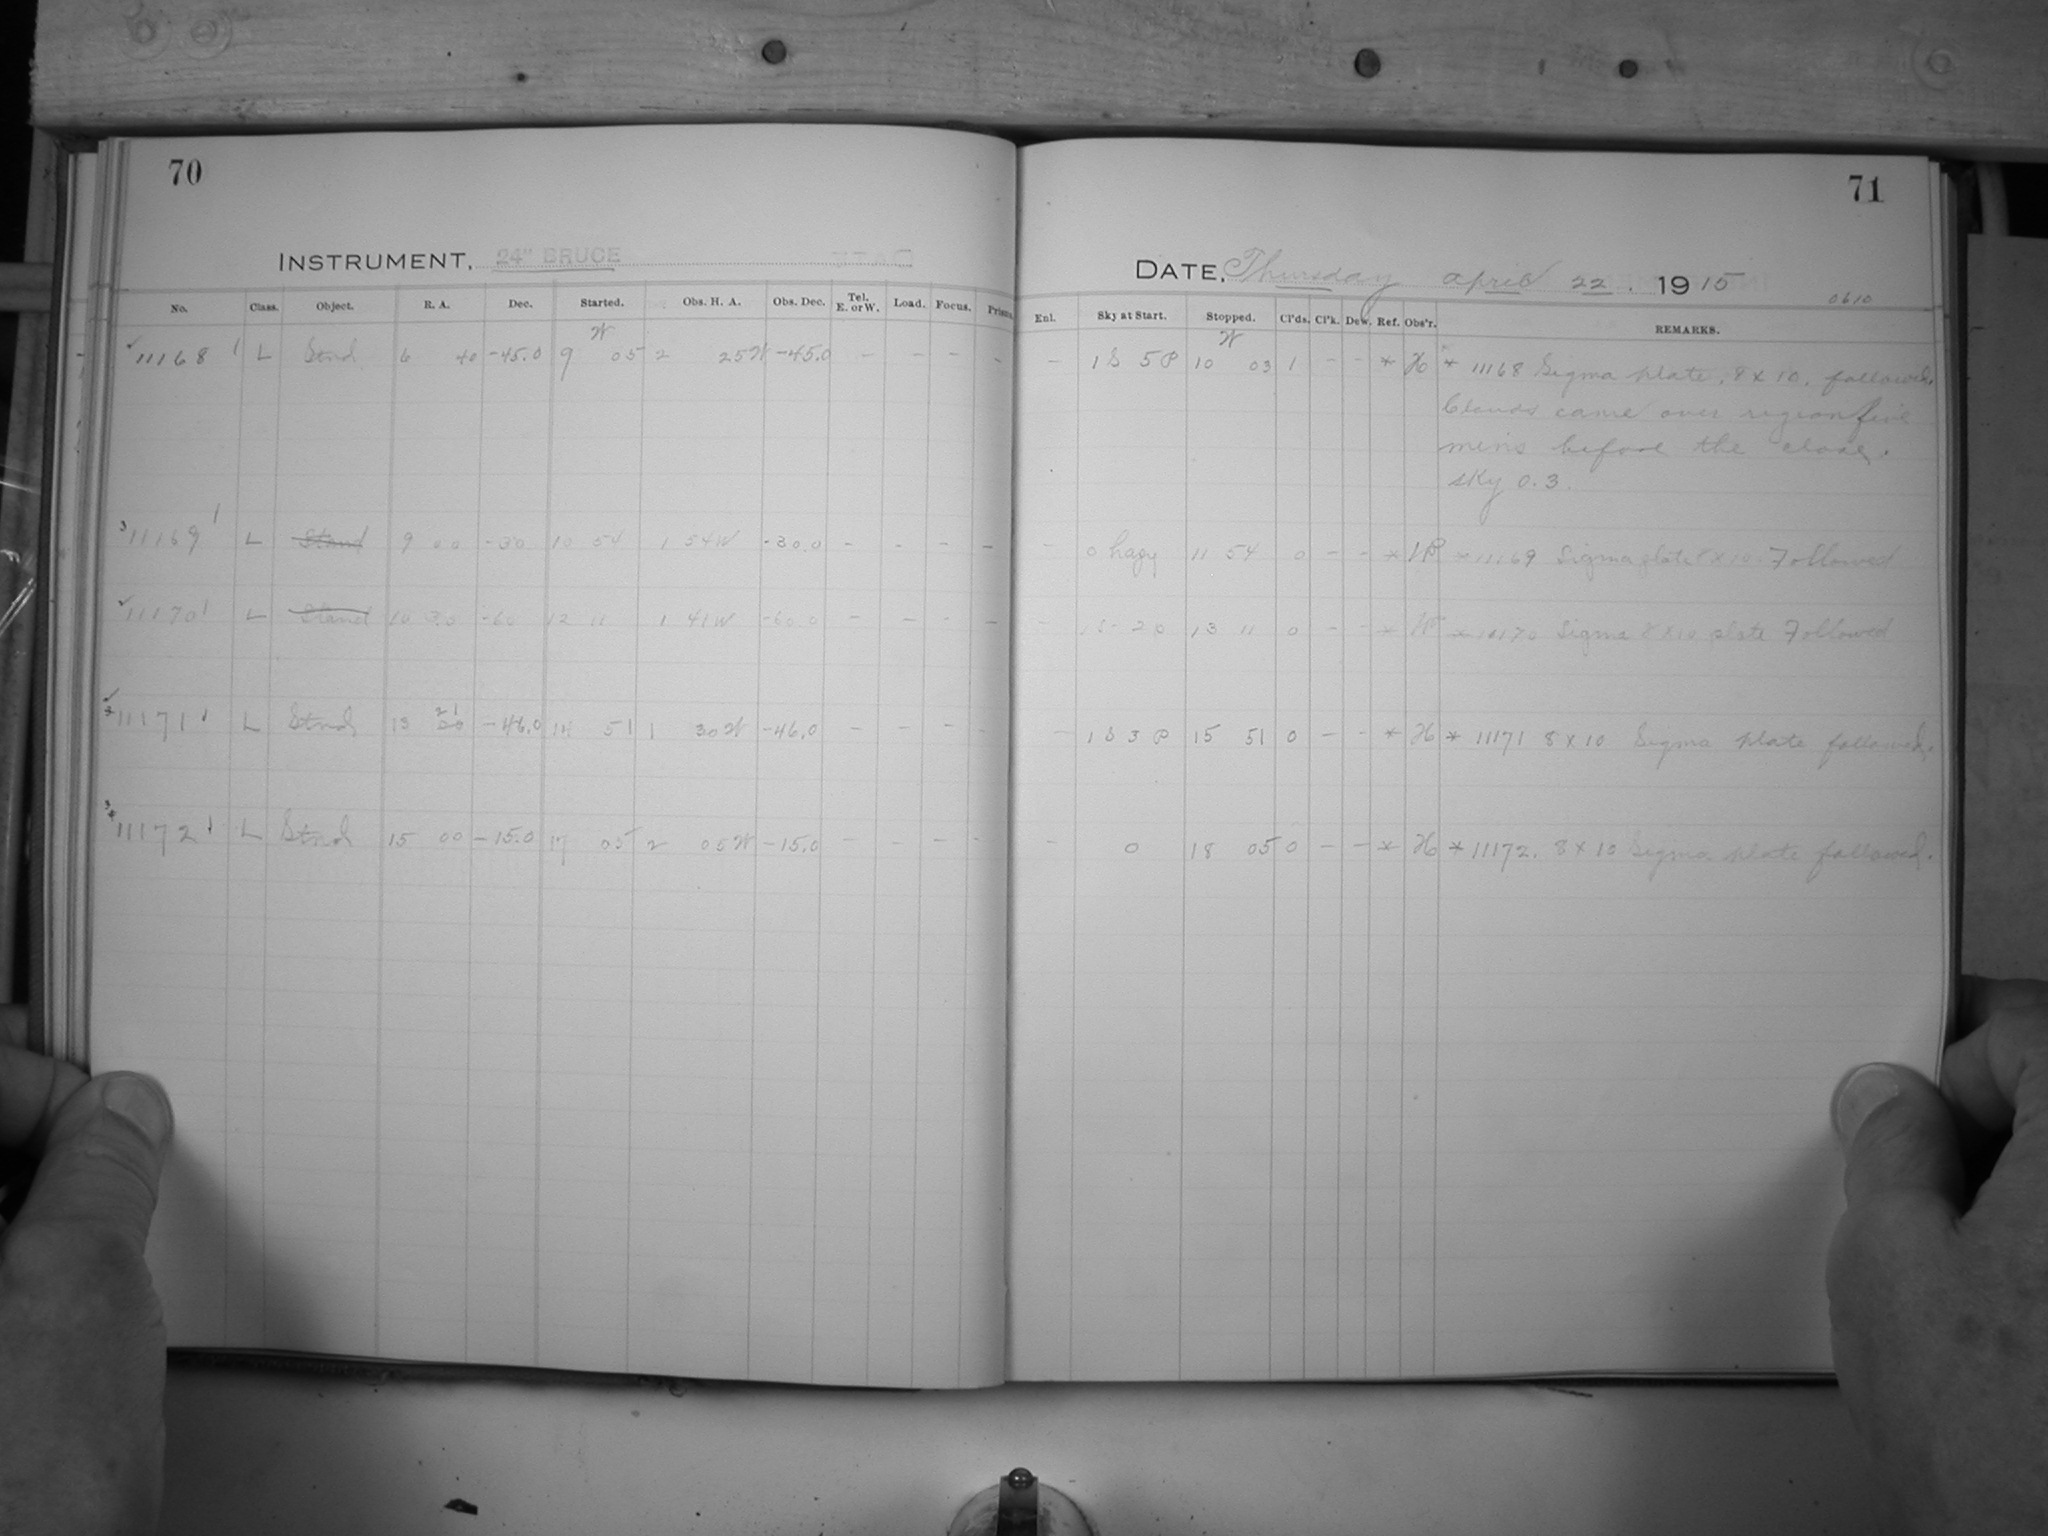 70
INSTRUMENT, 24" BRUCE
No. Class. Object. R. A. Dec. Started. Obs. H. A. Obs. Dec. Tel. E. or W. Load. Focus. Prism.
W
11168 L Stnd 6 40 -45.0 9 05 2 25 W -45.0 - - - -
11169 L Stand 9 00 -30 10 54 1 54 W -30.0 - - - -
11170 L Stand 10 30 -60 12 11 1 41 W -60.0 - - - -
21
11171 L Stnd 13 20 -46.0 14 51 1 30 W -46.0 - - -
11172 L Stnd 15 00 -15.0 17 05 2 05 W -15.0 - - - -
71
DATE, Thursday April 22. 1915
0610
Enl. Sky at Start. Stopped. Cl'ds. Cl'k. Dew. Ref. Obs'r. REMARKS.
W
- 1 S 5 P 10 03 1 - - * H * 11168 Sigma plate, 8 x 10, followed.
Clouds came over region five
mins before the close.
sky 0.3.
- 0 hazy 11 54 0 - - * * 11169 Sigma plate 8 x 10. Followed
- 13 11 0 - - * * 11170 Sigma 8 x 10 plate Followed
- 1 S 3 P 15 51 0 - - * H * 11171 8 x 10 Sigma plate followed.
- 0 18 05 0 - - * H * 11172. 8 x 10 Sigma plate followed.